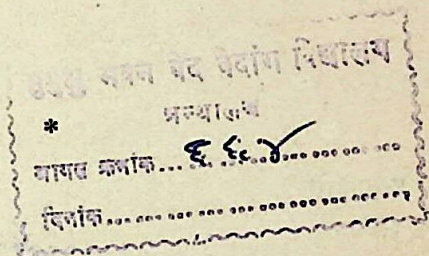 भवन वेद वेदांग विद्यालय
ग्रन्थालय
आगत क्रमांक... ६६४ ...
दिनांक...